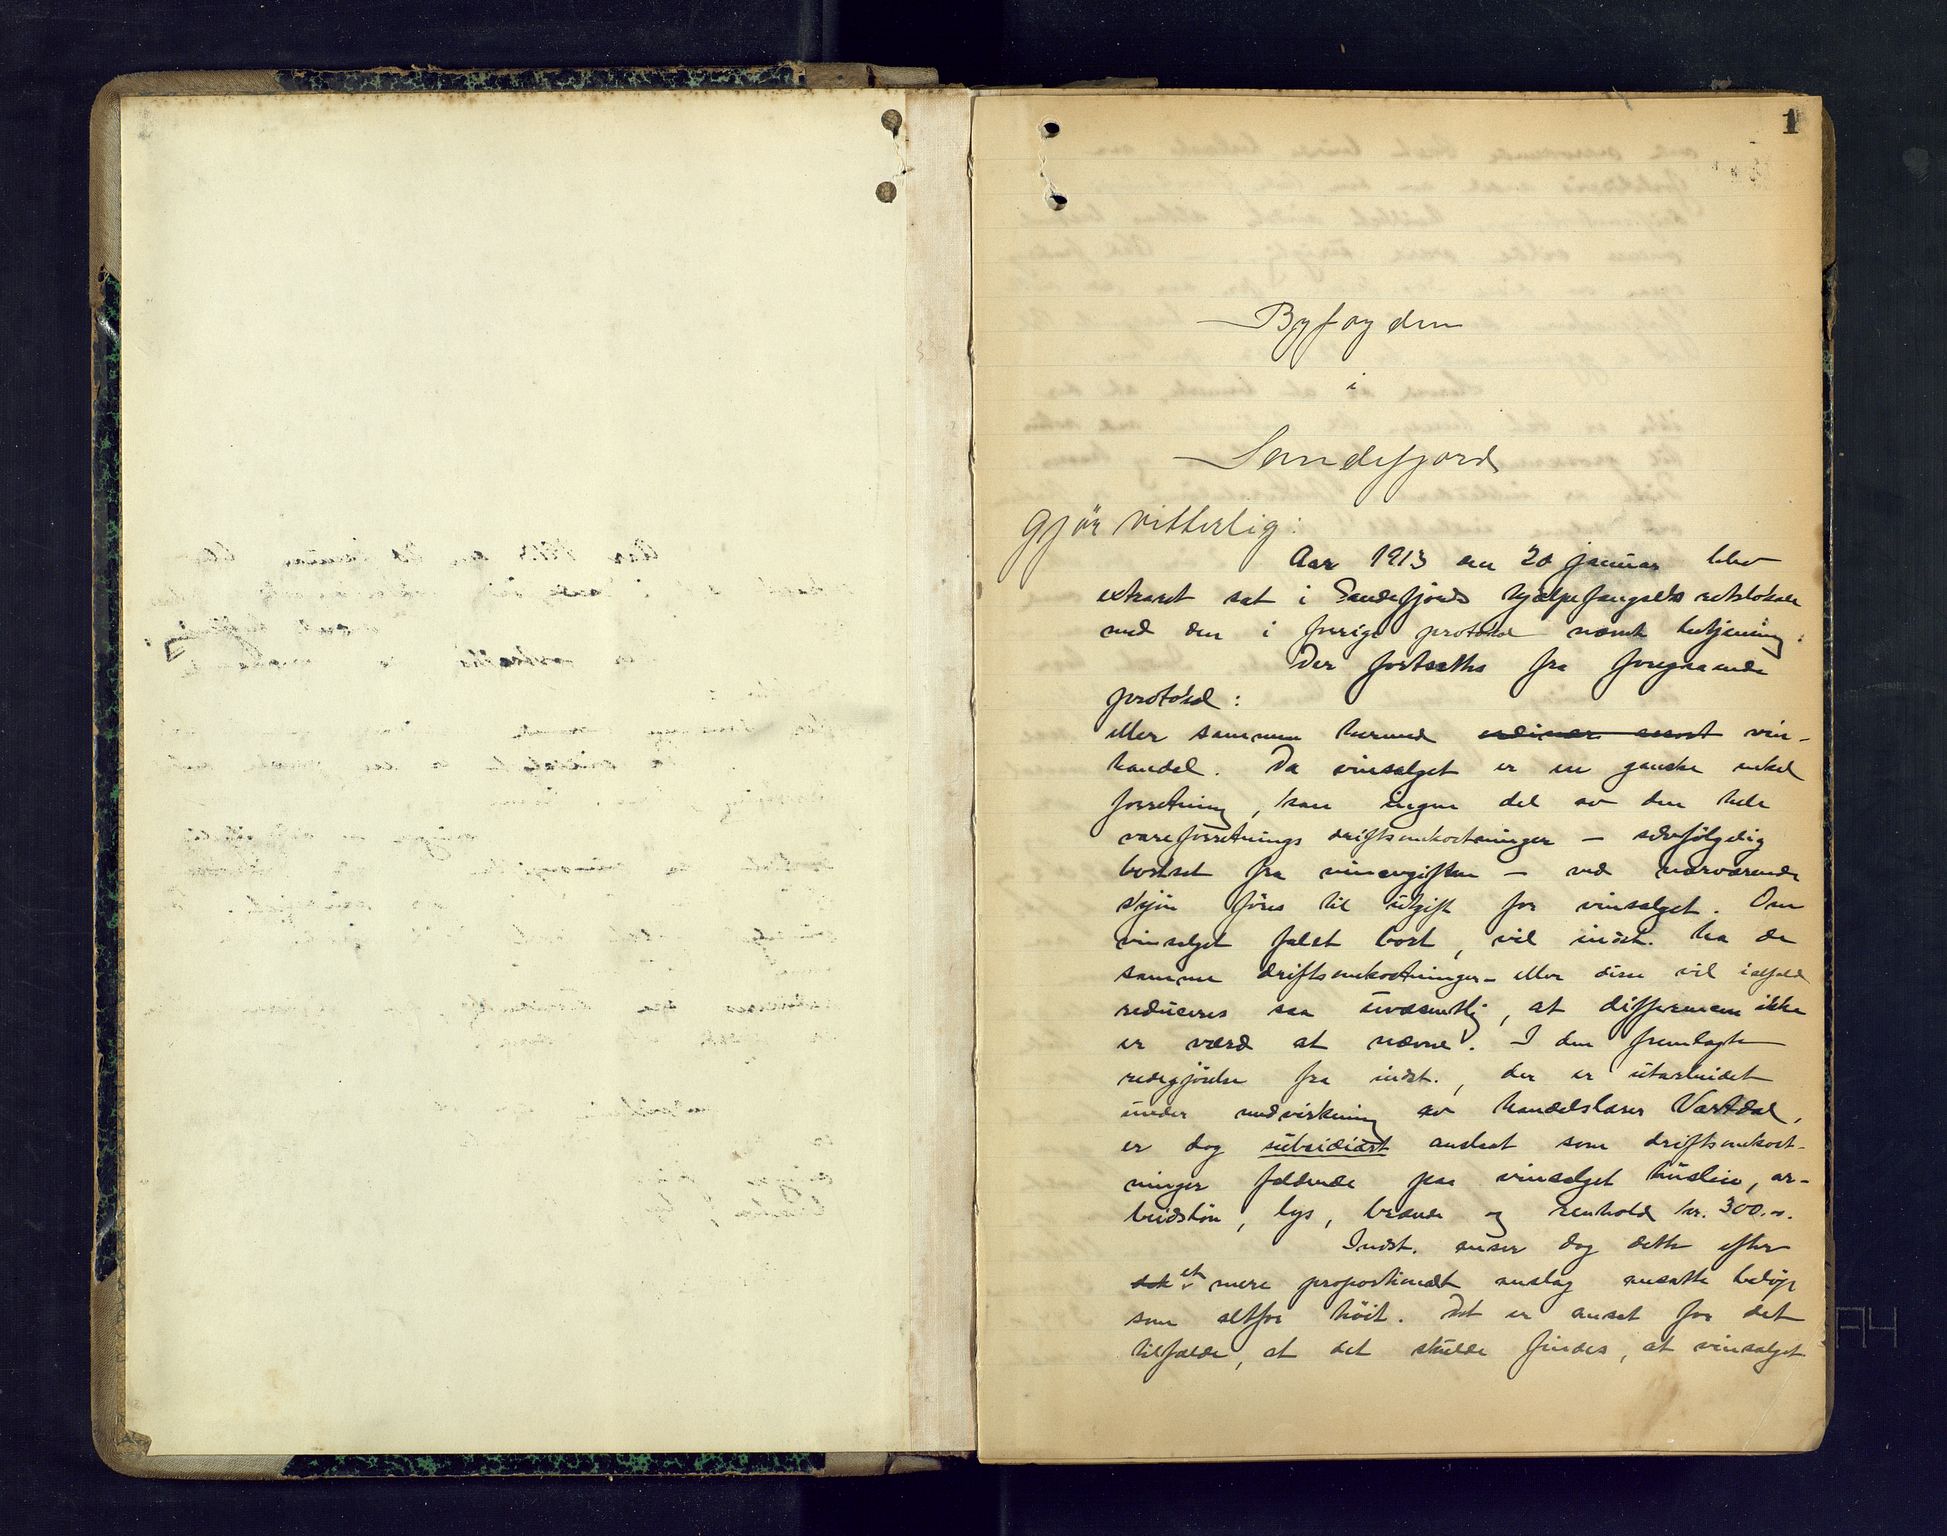 1
Byfogden
i
Sandefjord
gjör vitterlig:
Aar 1913 den 20 januar blev
extraret sat i Sandefjords hjælpefængsels retslokale
med den i forrige protokol nævnte betjening.
Der fortsattes fra foregaaende
protokol:
eller sammen hermed vin-
handel. Da vinsalget er en ganske enkel
forretning, kan ingen del av den hele
vareforretnings driftsomkostninger – selvfølgelig
bortset fra vinavgiften – ved nærværende
skjön föres til utgift for vinsalget. Om
vinsalget faldt bort, vil indst. ha de
samme driftsomkostninger – eller disse vil ialfald
reduceres saa uvæsentlig, at differencen ikke
er værd at nævne. I den fremlagte
redegjörelse fra indst., der er utarbeidet
under medvirkning av handelslærer Vartdal,
er dog subsidiært anslaat som driftsomkost-
ninger faldende paa vinsalget husleie, ar-
beidslön, lys, brænde og renhold kr. 300.00.
Indst. anser dog dette efter
et mere proportionalt anslag ansatte belöp
som altfor höit. Det er anset for det
tilfælde, at det skulde findes, at vinsalget